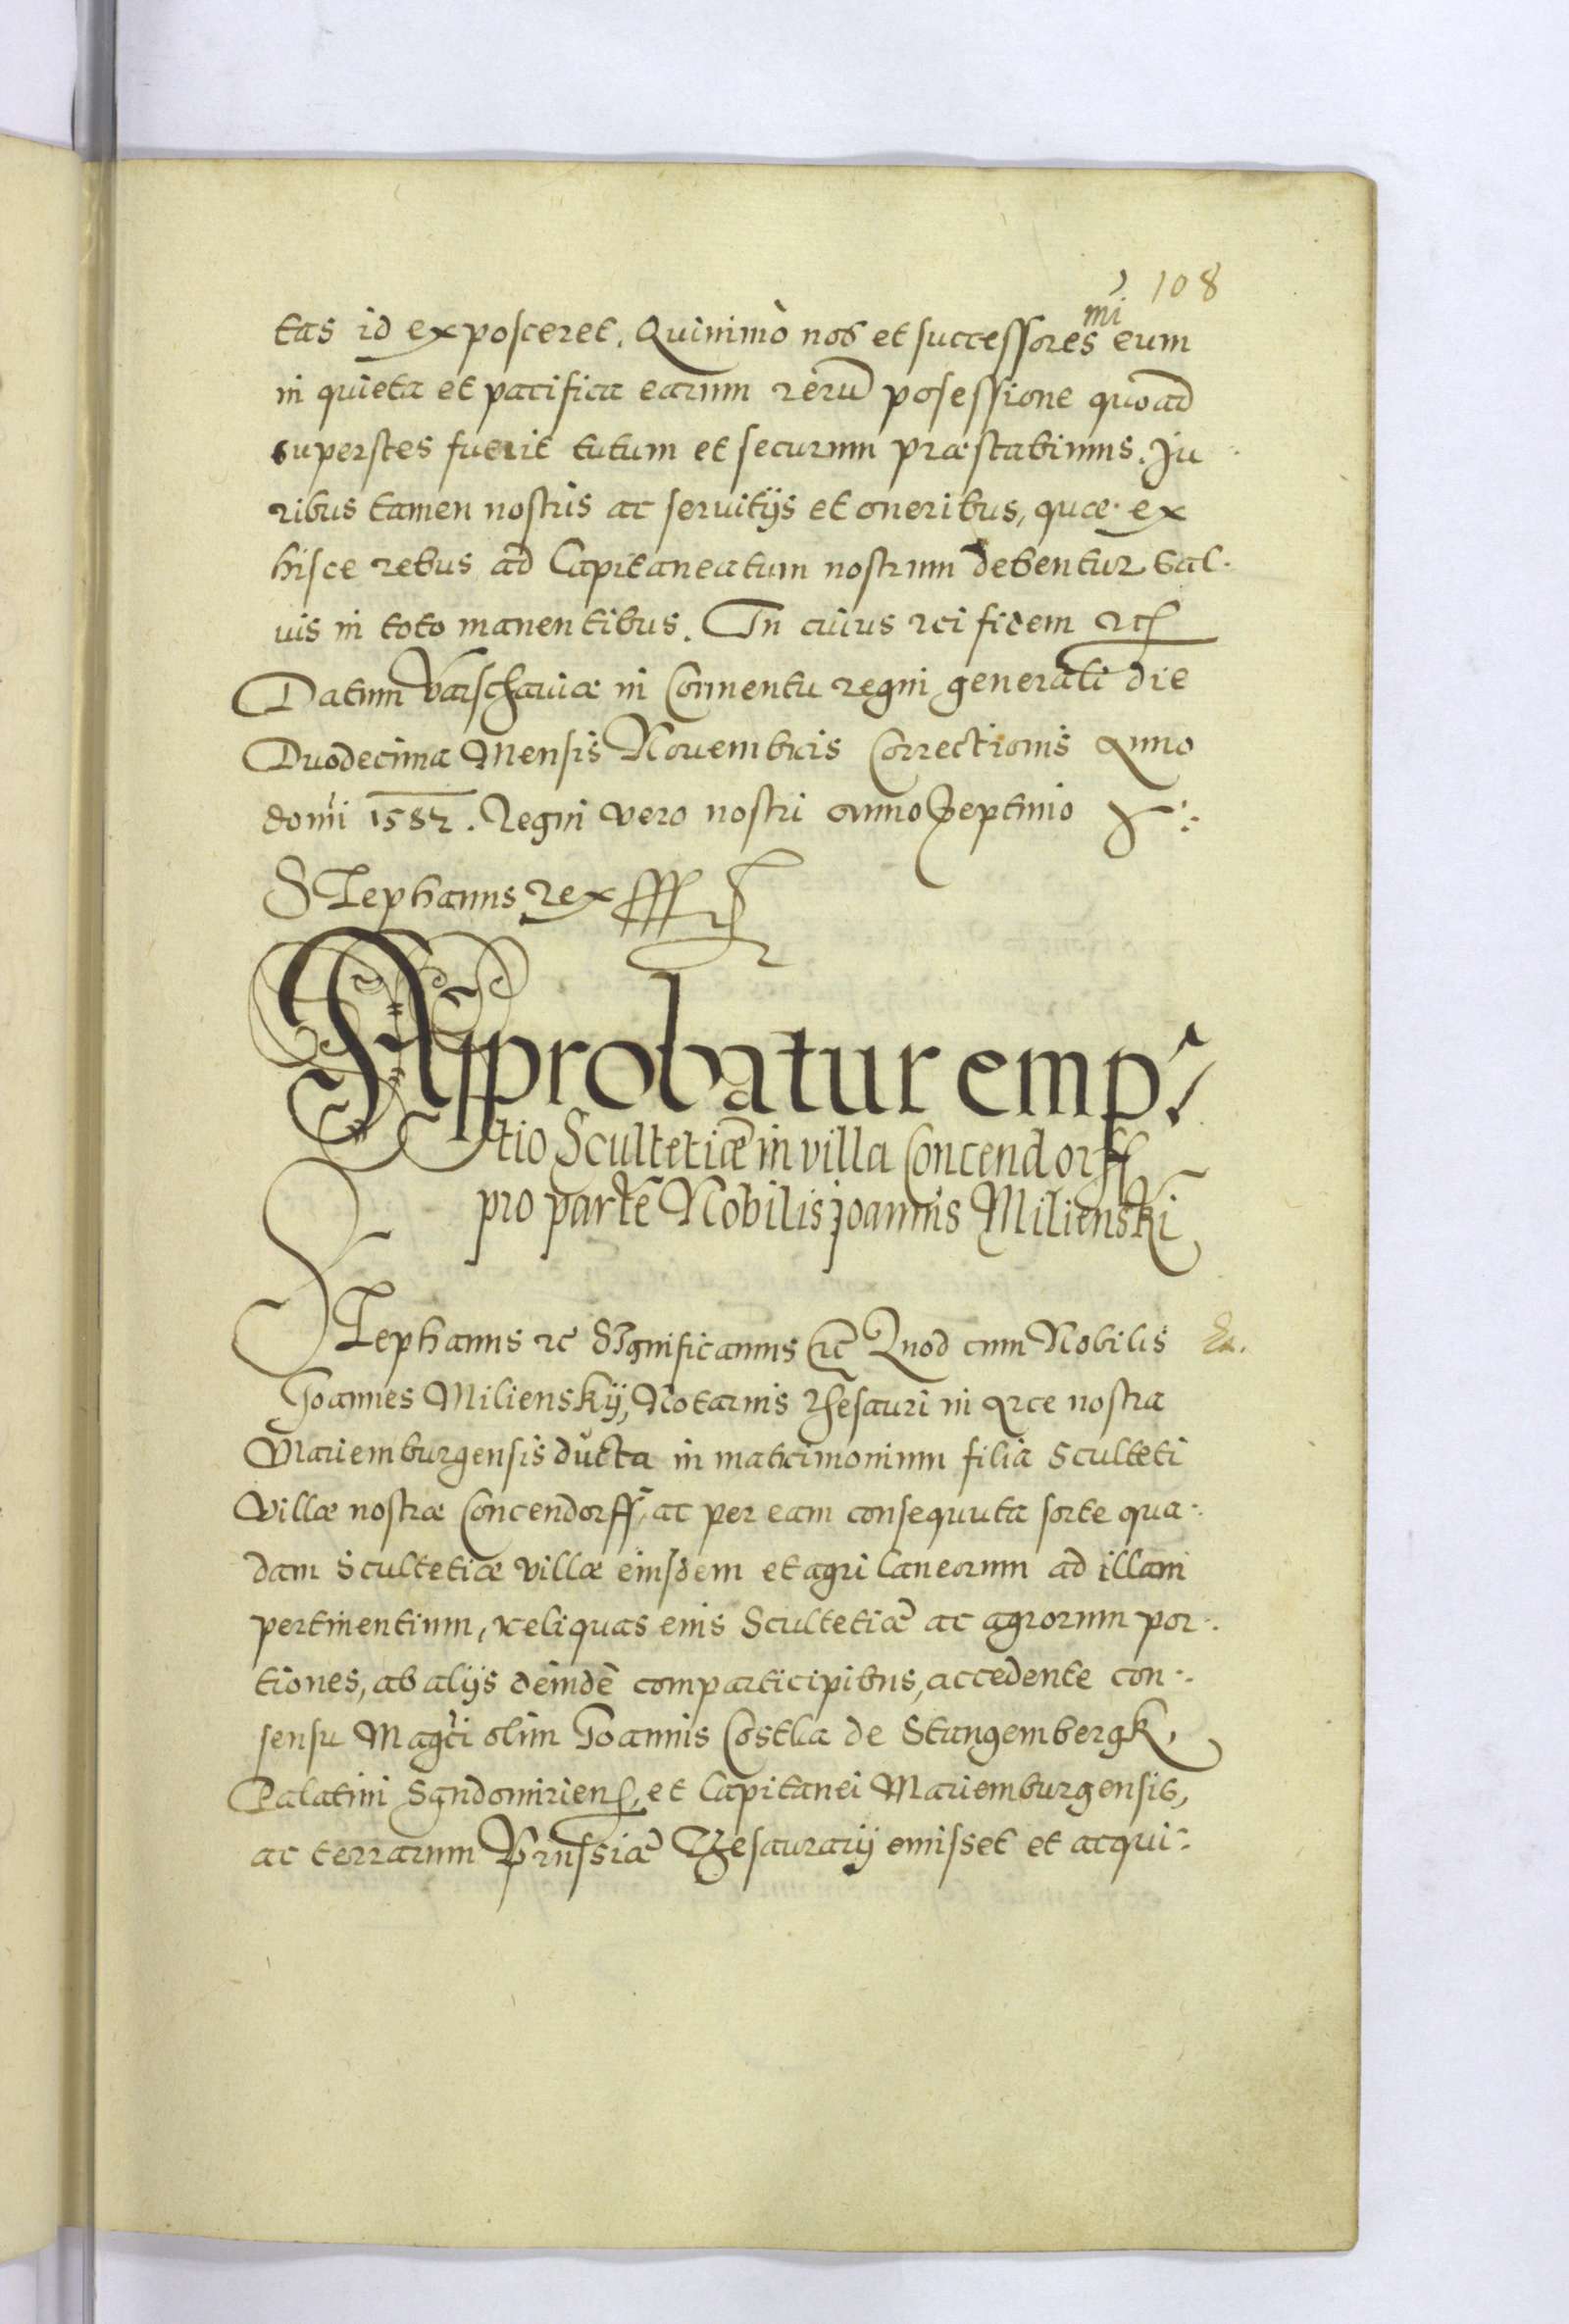 108
tas id exposceret. Quinimò nos et successores nri eum
in quieta et pacifica earum rerū posessione quoad
superstes fuerit tutum et securum præstabimus. Ju
ribus tamen nostris ac seruitijs et oneribus, quæ ex
hisce rebus ad Capitaneatum nostrum debentur sal-
uis in toto manentibus. In cuius rei fidem etc
Datum Varschauiæ in Conuentu regni generali die
Duodecima Mensis Nouembris Correctionis Anno
domi 1582. Regni vero nostri anno Septimo
Stephanus rex
Approbatur emp-
tio Scultetiæ in villa Concendorff
pro parte Nobilis Joannis Milienski
Stephanus etc Significamus etc Quod cum Nobilis
Joannes Milienskij, Notarius Thesauri in Arce nostra
Mariemburgensis ducta in matrimonium filia Sculteti
Villæ nostræ Concendorff, ac per eam consequuta sorte qua-
dam Scultetiæ villæ eiusdem et agri laneorum ad illam
pertinentium, reliquas eius Scultetiæ ac agrorum por-
tiones, ab alijs deinde comparticipibus, accedente con-
sensu Magci olim Joannis Costka de Stangembergk,
Palatini Sandomiriens, et Capitanei Mariemburgensis,
ac terrarum Prussiæ Thesaurarij emisset et acqui-